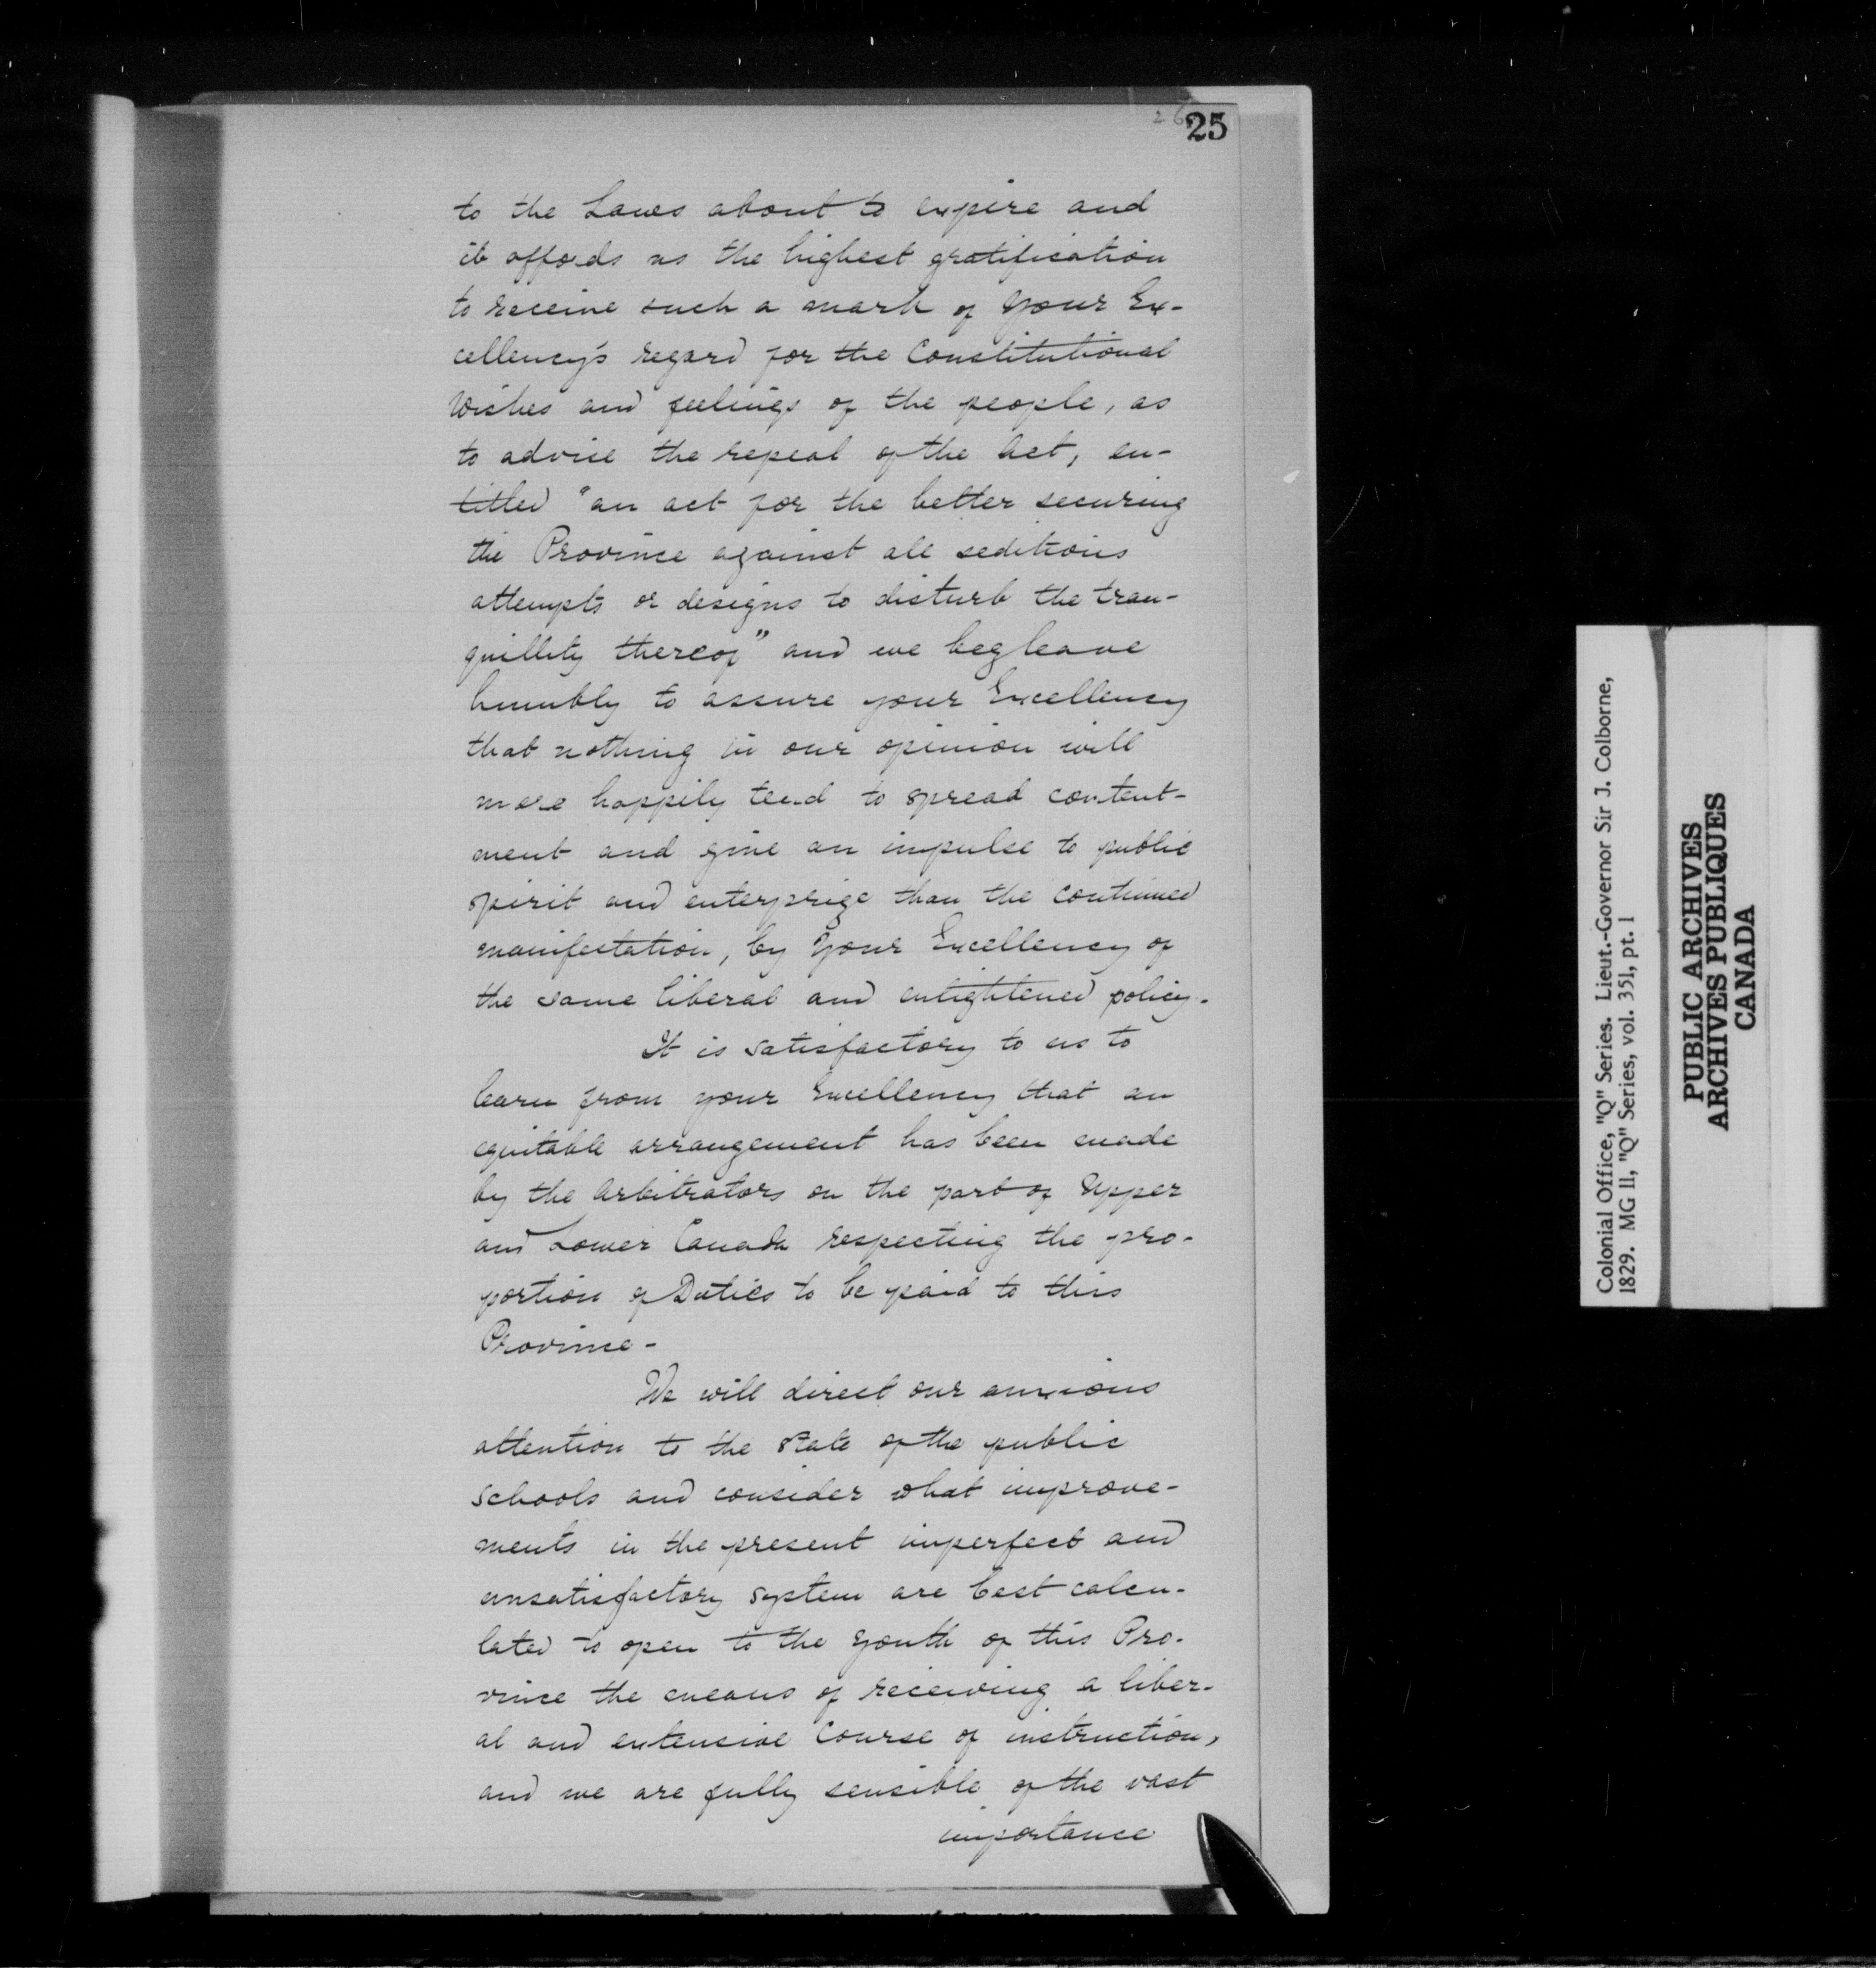 26
25
to the Laws about to expire and
it affords us the highest gratification
to receive such a mark of Your Ex-
cellency's regard for the Constitutional
Wishes and feelings of the people, as
to advise the repeal of the Act, en-
titled "an act for the better securing
the Province against all seditious
attempts or designs to disturb the tran-
quillity thereof" and we beg leave
humbly to assure your Excellency
that nothing in our opinion will
more happily tend to spread content-
ment and give an impulse to public
spirit and enterprize than the continued
manifestation, by Your Excellency of
the same liberal and enlightened policy.
It is satisfactory to us to
learn from your Excellency that an
equitable arrangement has been made
by the Arbitrators on the part of Upper
and Lower Canada respecting the pro-
portion of Duties to be paid to this
Province -
We will direct our anxious
attention to the State of the public
Schools and consider what improve-
ments in the present imperfect and
unsatisfactory system are best calcu-
lated to open to the Youth of this Pro-
vince the means of receiving a liber-
al and extensive Course of instruction,
and we are fully sensible of the vast
importance
Colonial Office, "Q" Series. Lieut.-Governor Sir J. Colborne,
1829. MG 11, "Q" Series, vol. 351, pt. 1
PUBLIC ARCHIVES
ARCHIVES PUBLIQUES
CANADA